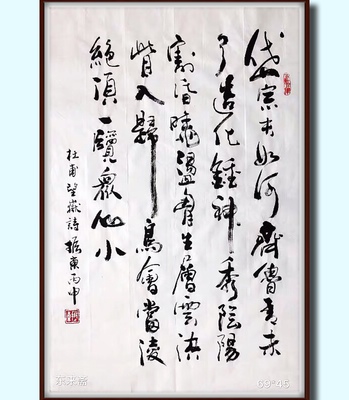 岱宗夫如何齊魯青未
了造化鍾神秀陰陽
割昏曉盪胸生層雲決
眥入歸鳥會當凌
絕頂一覽眾山小
杜甫望嶽詩振東丙申
69*45